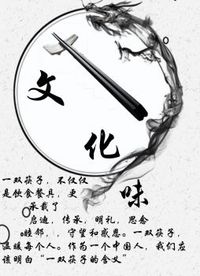 文
化
味
一双筷子，不仅仅
是饮食餐具，更
承载了
启迪，传承，明礼，思念
睦邻，，守望和感恩。一双筷子，
温暖每个人。作为一个中国人，我们应
该明白“一双筷子的含义”